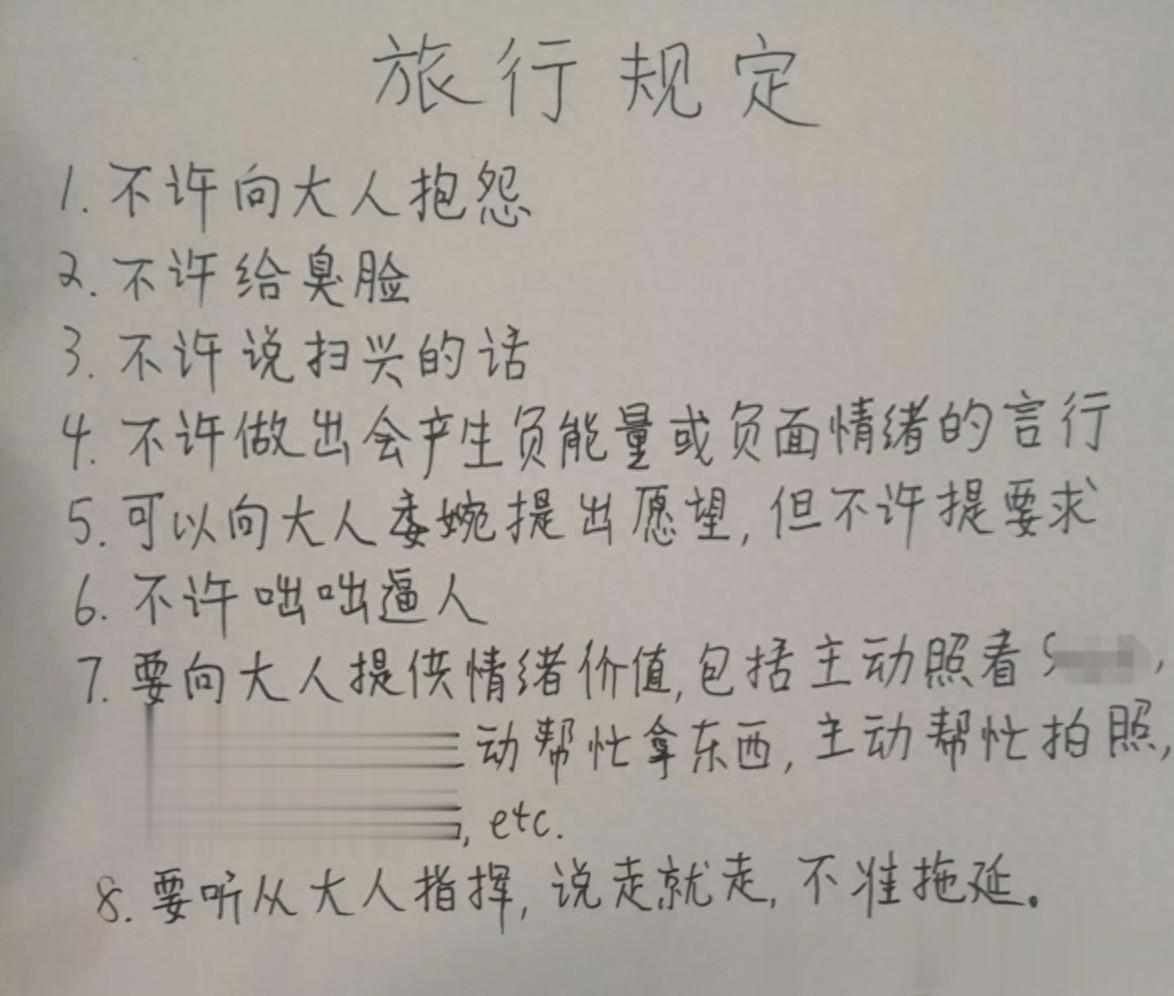 旅行规定
1. 不许向大人抱怨
2. 不许给臭脸
3. 不许说扫兴的话
4. 不许做出会产生负能量或负面情绪的言行
5. 可以向大人委婉提出愿望, 但不许提要求
6. 不许咄咄逼人
7. 要向大人提供情绪价值, 包括主动照看 S
动帮忙拿东西, 主动帮忙拍照,
, etc.
8. 要听从大人指挥, 说走就走, 不准拖延。